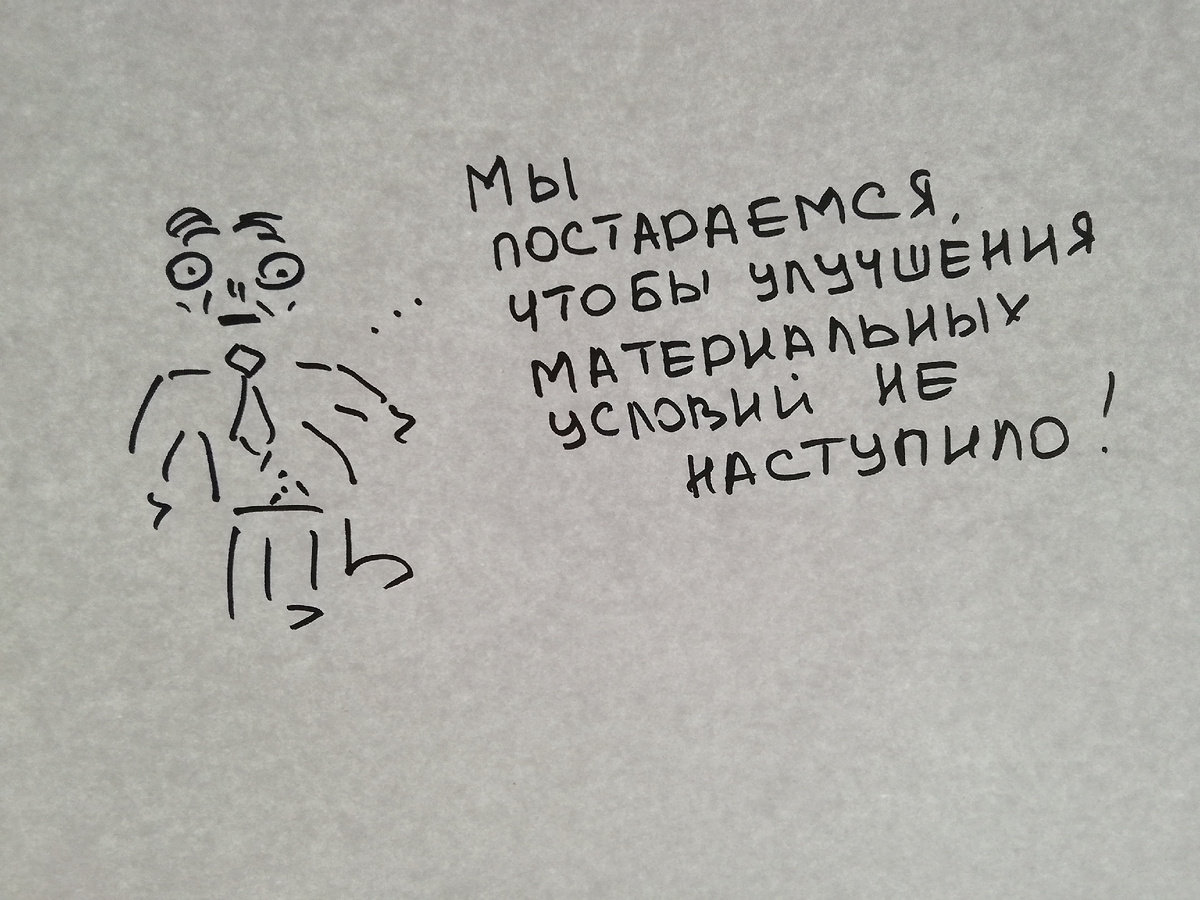 МЫ
ПОСТАРАЕМСЯ,
ЧТОБЫ УЛУЧШЕНИЯ
МАТЕРИАЛЬНЫХ
УСЛОВИЙ НЕ
НАСТУПИЛО!